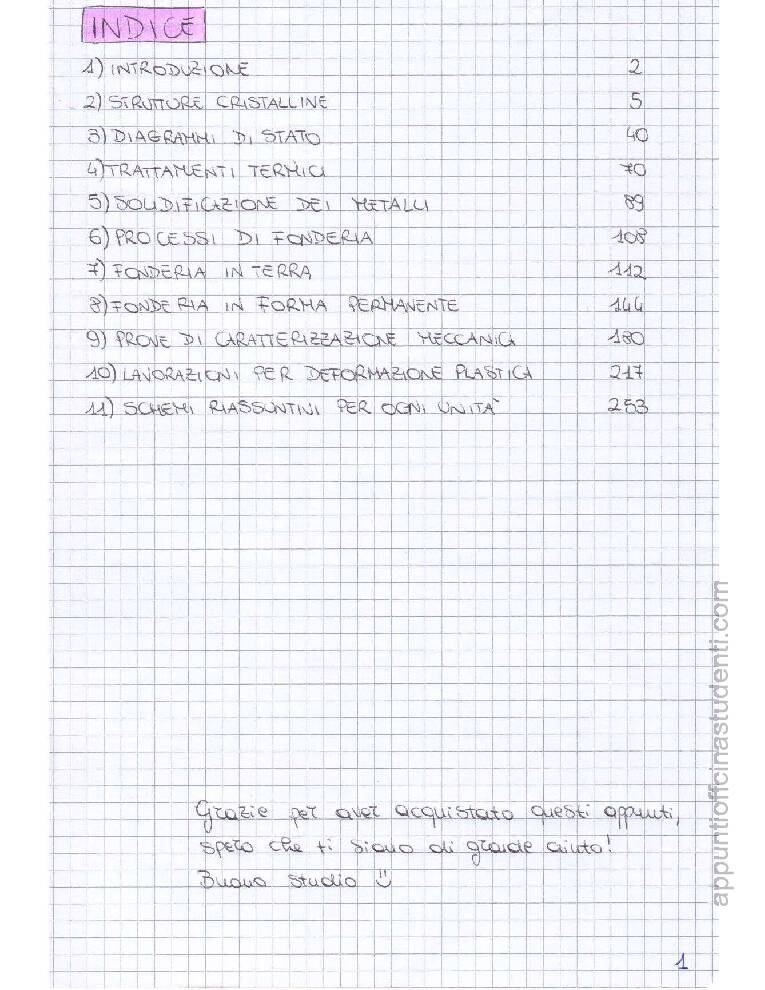 INDICE
1) INTRODUZIONE 2
2) STRUTTURE CRISTALLINE 5
3) DIAGRAMMI DI STATO 40
4) TRATTAMENTI TERMICI 70
5) SOLIDIFICAZIONE DEI METALLI 89
6) PROCESSI DI FONDERIA 108
7) FONDERIA IN TERRA 112
8) FONDERIA IN FORMA PERMANENTE 144
9) PROVE DI CARATTERIZZAZIONE MECCANICA 180
10) LAVORAZIONI PER DEFORMAZIONE PLASTICA 217
11) SCHEMI RIASSUNTIVI PER OGNI UNITA' 253
Grazie per aver acquistato questi appunti,
spero che ti siano di grande aiuto!
Buono studio
1
appuntiofficinastudenti.com